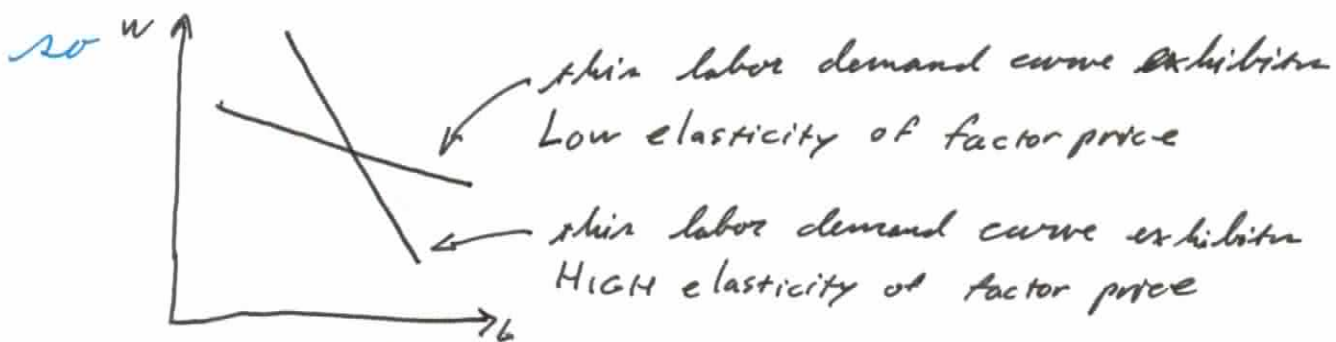 so
W
this labor demand curve exhibits
Low elasticity of factor price
this labor demand curve exhibits
HIGH elasticity of factor price
L